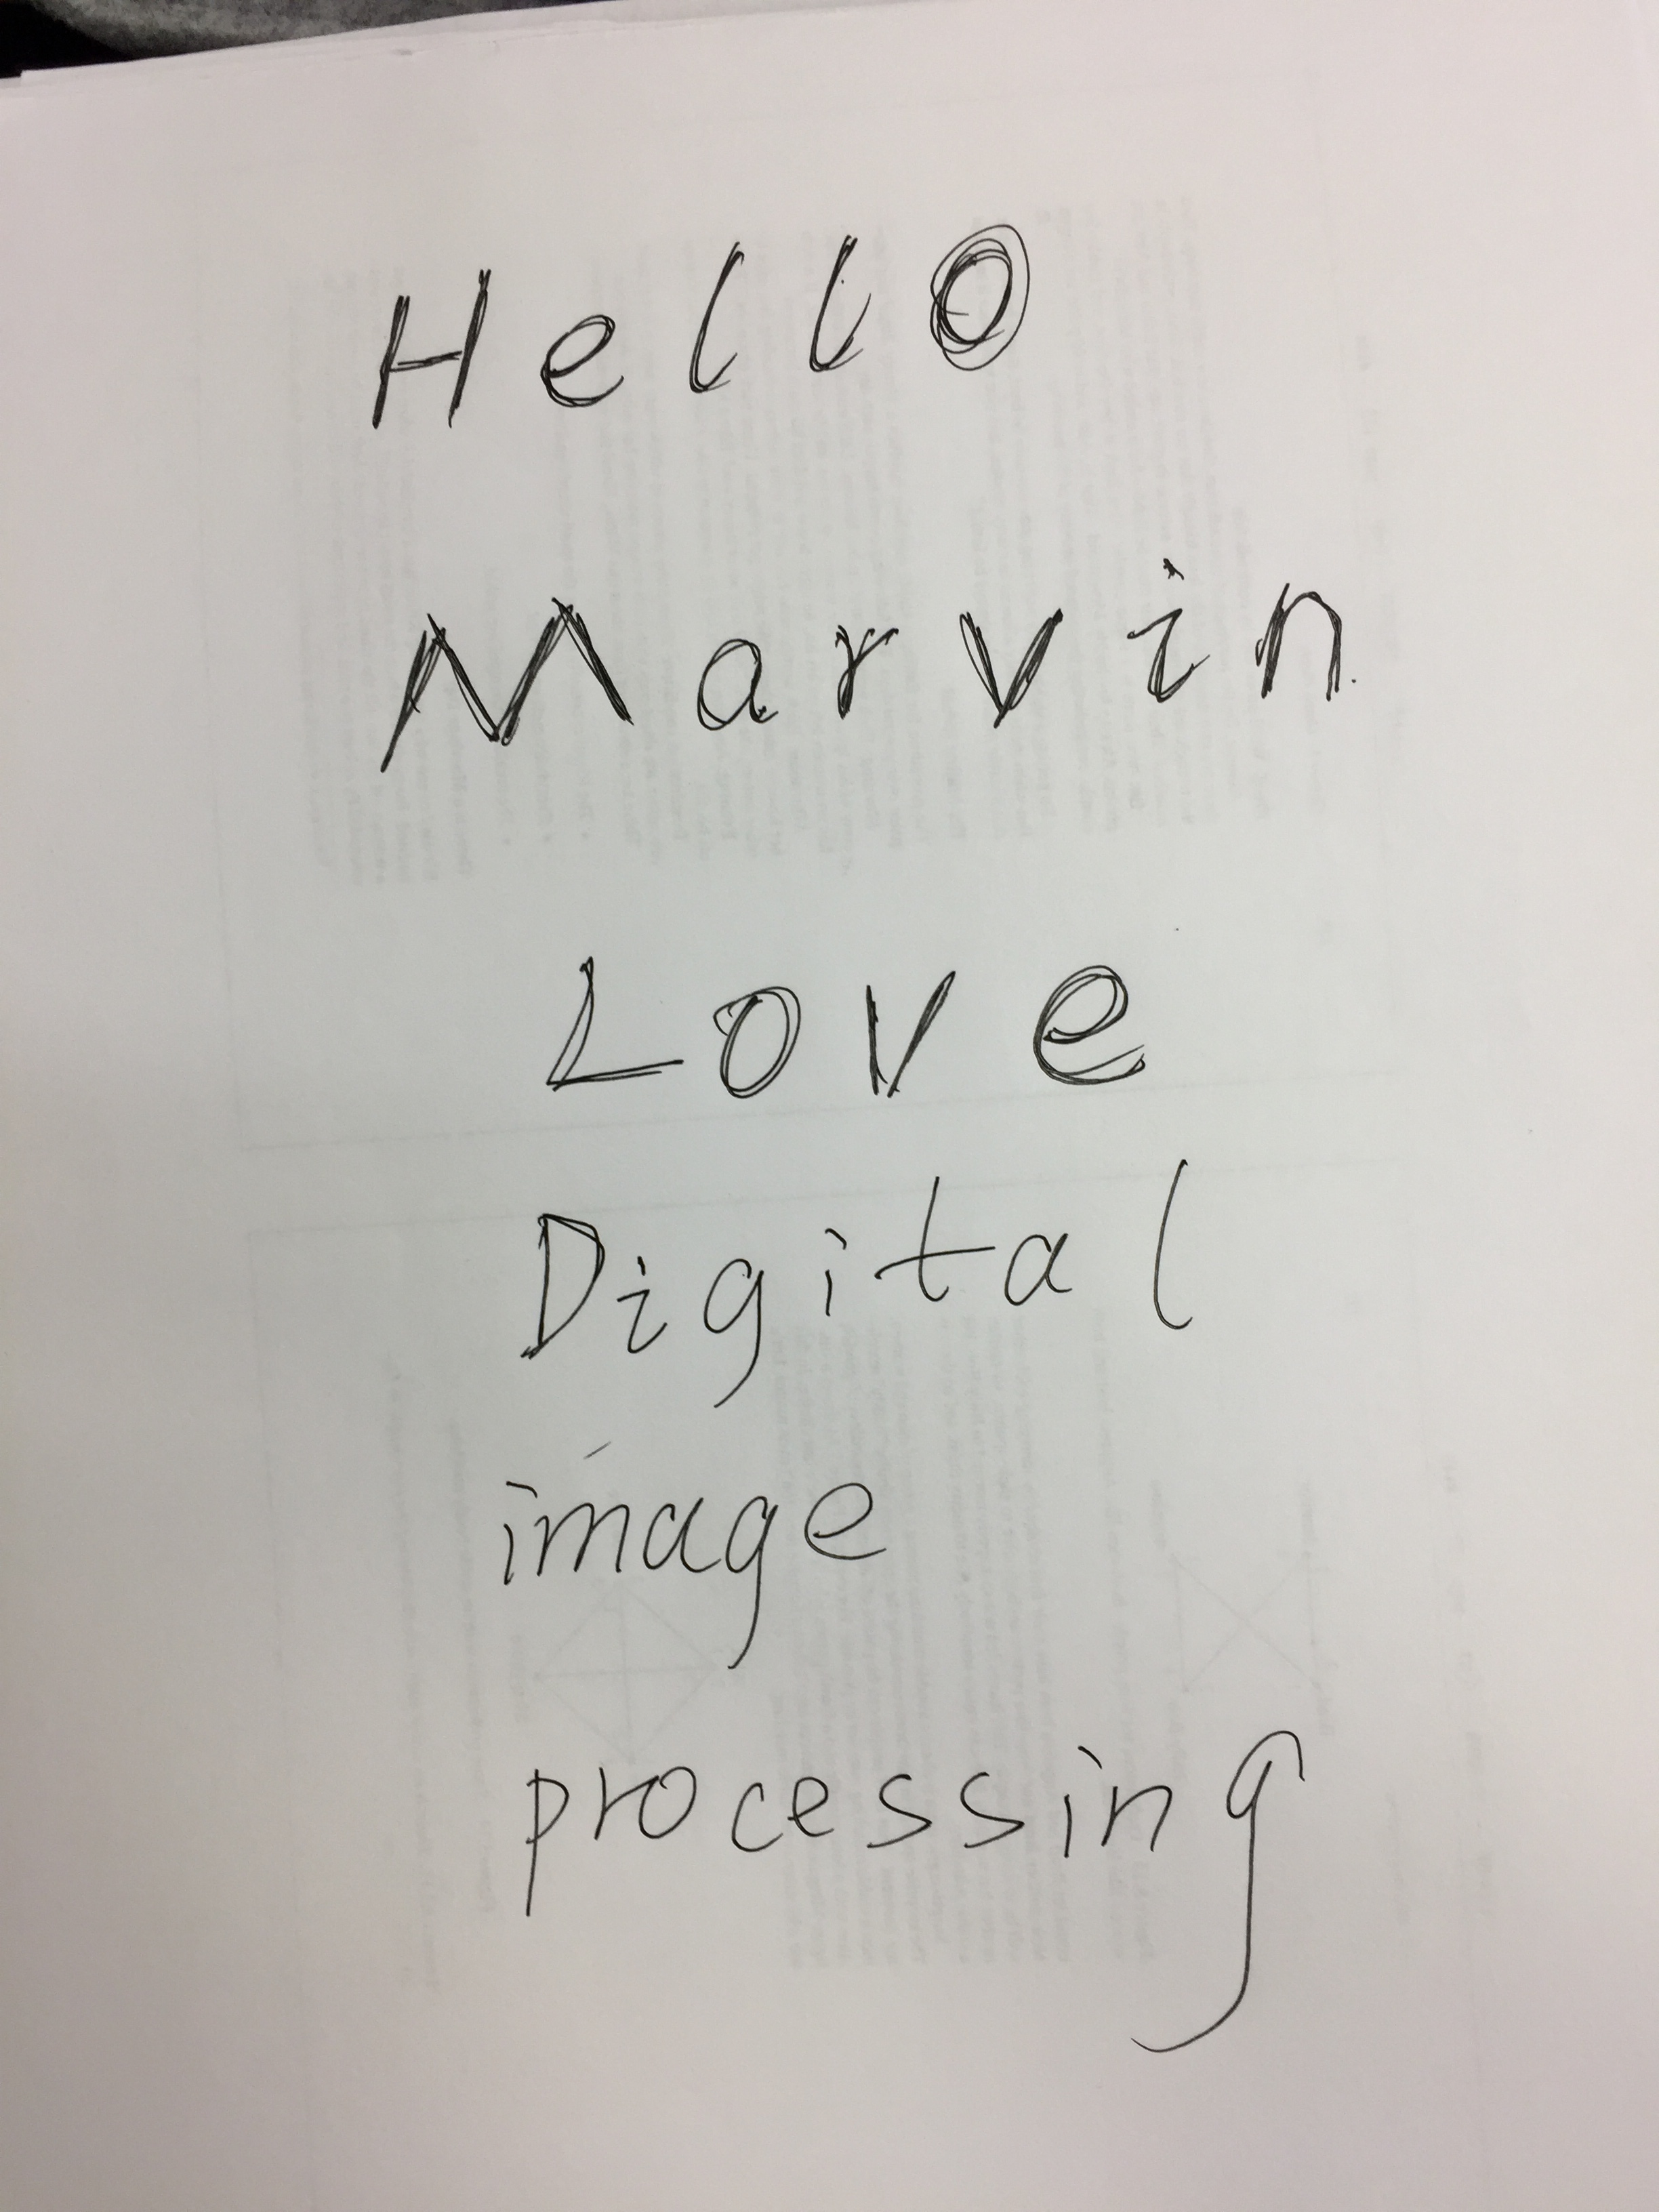 Hello
Marvin
Love
Digital
image
processing